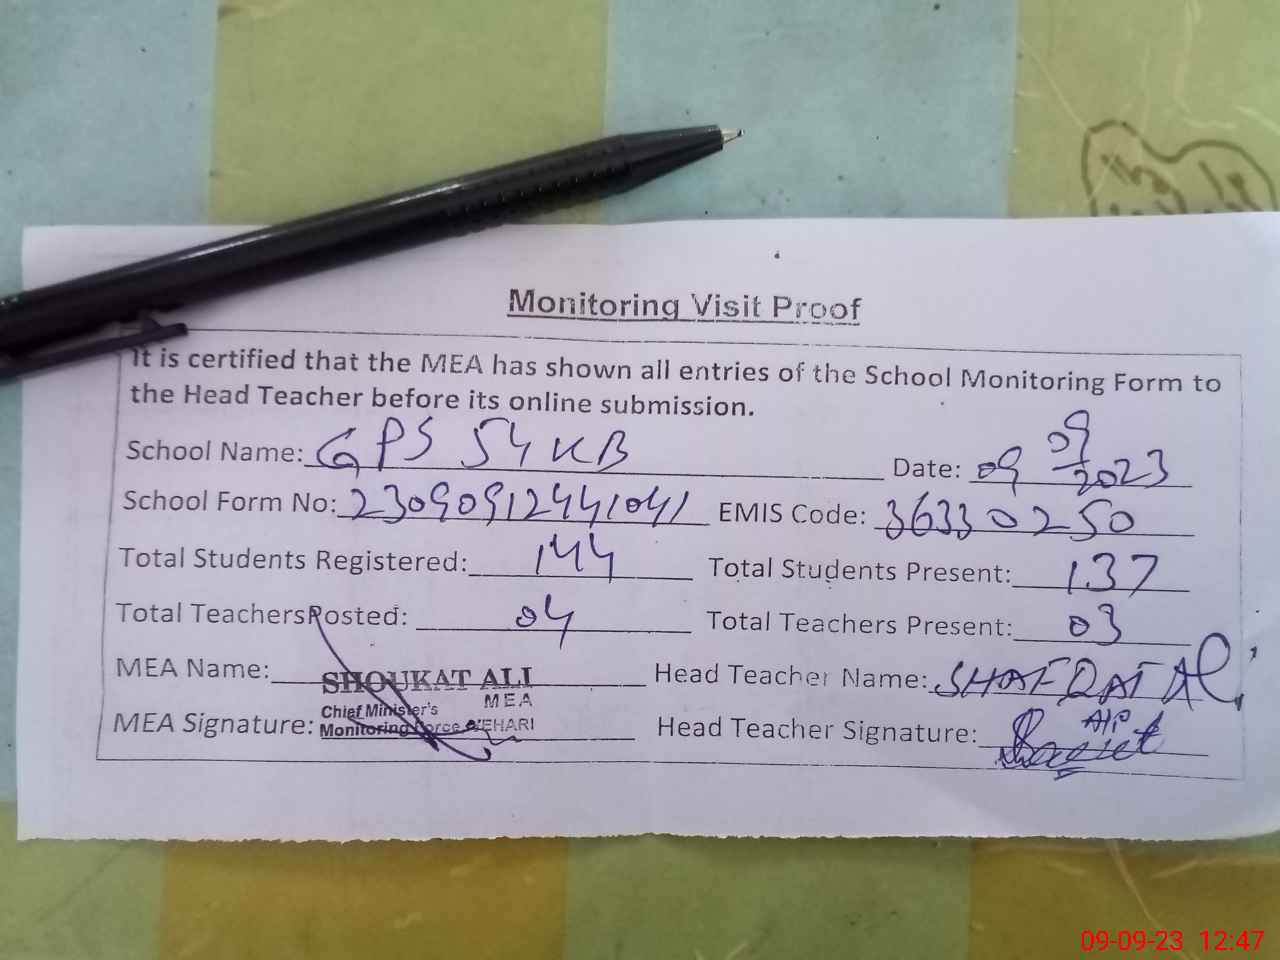 Monitoring Visit Proof
It is certified that the MEA has shown all entries of the School Monitoring Form to
the Head Teacher before its online submission.
School Name: GPS 54 KB Date: 09 09 2023
School Form No: 23090912441041 EMIS Code: 36330250
Total Students Registered: 144 Total Students Present: 137
Total Teachers Posted: 04 Total Teachers Present: 03
MEA Name: SHOUKAT ALI Head Teacher Name: SHAFQAT Ali
MEA
Chief Minister's
MEA Signature: Monitoring Force VEHARI Head Teacher Signature:
09-09-23 12:47